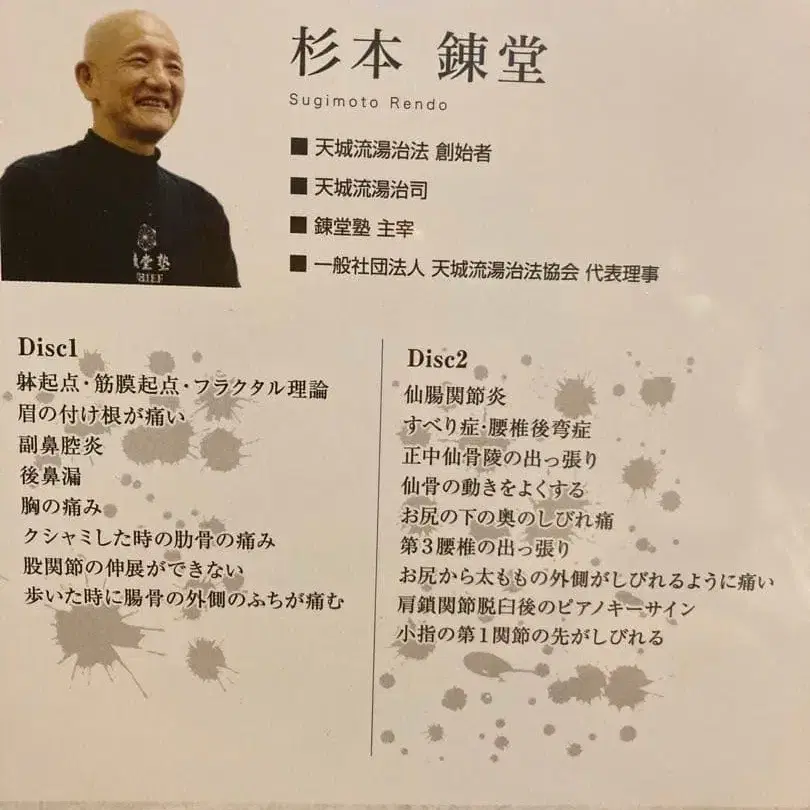 杉本 錬堂
Sugimoto Rendo
■ 天城流湯治法 創始者
■ 天城流湯治司
■ 錬堂塾 主宰
■ 一般社団法人 天城流湯治法協会 代表理事
堂塾
CHIEF
Disc1
躰起点・筋膜起点・フラクタル理論
眉の付け根が痛い
副鼻腔炎
後鼻漏
胸の痛み
クシャミした時の肋骨の痛み
股関節の伸展ができない
歩いた時に腸骨の外側のふちが痛む
Disc2
仙腸関節炎
すべり症・腰椎後弯症
正中仙骨陵の出っ張り
仙骨の動きをよくする
お尻の下の奥のしびれ痛
第3腰椎の出っ張り
お尻から太ももの外側がしびれるように痛い
肩鎖関節脱臼後のピアノキーサイン
小指の第1関節の先がしびれる